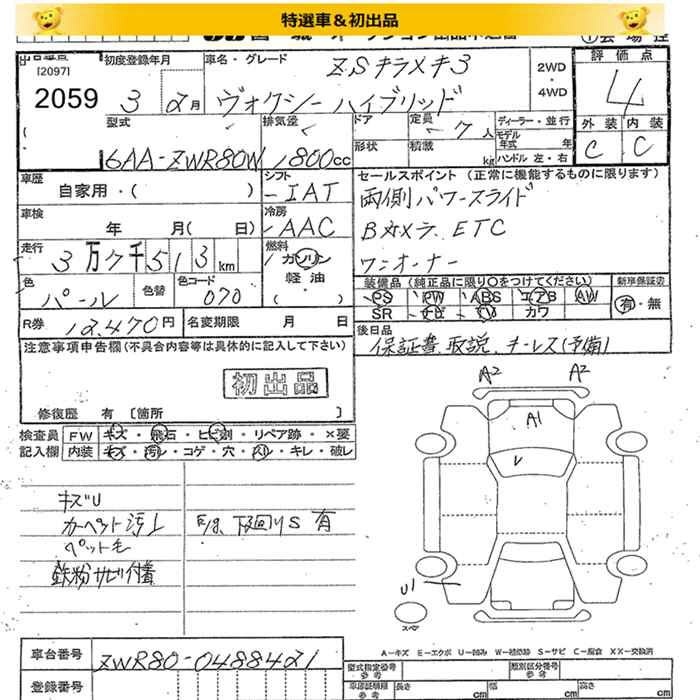 特選車＆初出品
[2097]
2059
初度登録年月
3 2月
車名・グレード
ZSキラメキ3
ヴォクシーハイブリッド
2WD
・
4WD
評価点
4
外装 内装
C C
型式
6AA-ZWR80W
排気量
1800cc
ドア
形状
定員 7人
積載 kg
ディーラー・並行
モデル年式 年
ハンドル 左・右
車歴
自家用・( )
シフト
IAT
セールスポイント (正常に機能するものに限ります)
両側パワースライド
Bカメラ. ETC
ワンオーナー
車検
年 月( 日)
冷房
AAC
走行
3万7千513km
燃料
ガソリン
軽油
( )
色
パール
色替
色コード
070
装備品 (純正品に限り○をつけてください)
PS PW ABS エアB AW
SR ナビ TV カワ
新車保証書
有・無
R券 12,470円
名変期限 月 日
後日品
保証書 取説 キーレス(予備)
注意事項申告欄(不具合内容等は具体的に記入して下さい)
初出品
修復歴 有〔箇所 〕
検査員記入欄
FW キズ・飛石・ヒビ割・リペア跡・×要
内装 キズ・汚レ・コゲ・穴・入リ・キレ・破レ
キズU
カーペット汚レ
ペット毛
鉄粉サビ付着
下回りS 有
A2 A2
A1
U1
スペア
A－キズ E－エクボ U－凹み W－補修跡 S－サビ C－腐食 XX－交換済
車台番号
ZWR80-0488421
登録番号
型式指定番号
参考
類別区分番号
参考
車庫証明用
参考
長さ cm
幅 cm
高さ cm